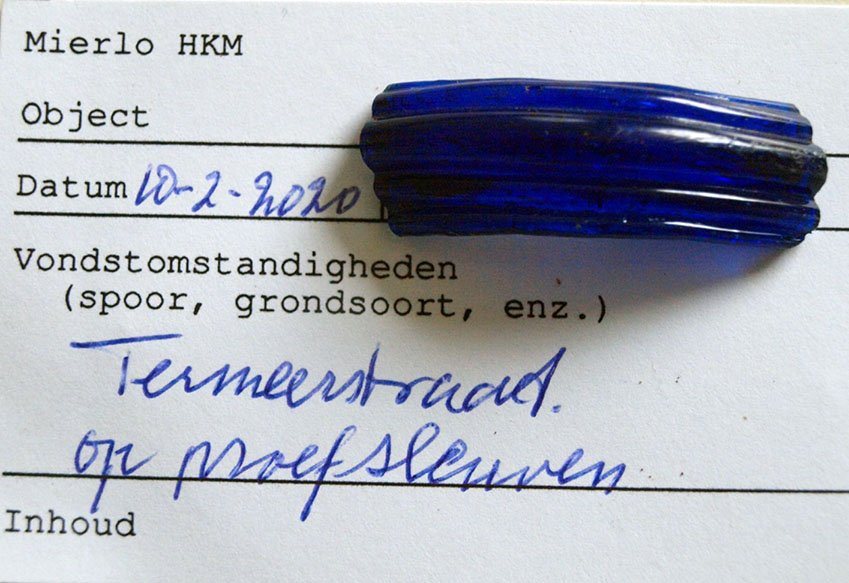 Mierlo HKM
Object
Datum 10-2-2020
Vondstomstandigheden
(spoor, grondsoort, enz.)
Termeerstraat.
op proefsleuven
Inhoud